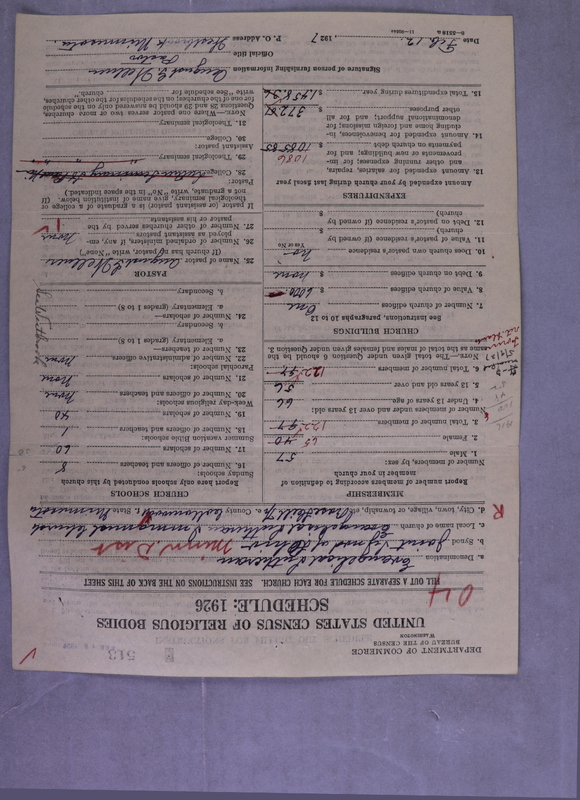 DEPARTMENT OF COMMERCE
BUREAU OF THE CENSUS
WASHINGTON
513
UNITED STATES CENSUS OF RELIGIOUS BODIES
SCHEDULE: 1926
04
FILL OUT A SEPARATE SCHEDULE FOR EACH CHURCH. SEE INSTRUCTIONS ON THE BACK OF THIS SHEET
a. Denomination Evangelical Lutheran
b. Synod Joint Synod of Ohio Minn Dist
c. Local name of church Evangelical Lutheran Immanuel church
d. City, town, village, or township, etc. Rose Hill Tp e. County Cottonwood f. State Minnesota
R
MEMBERSHIP
Report number of members according to definition of member in your church
Number of members, by sex:
1. Male 57
2. Female 40 65
3. Total number of members 97 122
Number of members under and over 13 years old:
4. Under 13 years of age 66
5. 13 years old and over 56
6. Total number of members 122
NOTE.—The total given under Question 6 should be the same as the total of males and females given under Question 3.
CHURCH BUILDINGS
See instructions, paragraphs 10 to 12
7. Number of church edifices One
8. Value of church edifices $ 6000
9. Debt on church edifices $ none
10. Does church own pastor's residence no
Yes or No
11. Value of pastor's residence (if owned by church) $
12. Debt on pastor's residence (if owned by church) $
EXPENDITURES
Amount expended by your church during last fiscal year
13. Amount expended for salaries, repairs, and other running expenses; for improvements or new buildings; and for payments on church debt $ 1085.85 1086
14. Amount expended for benevolences, including home and foreign missions; for denominational support; and for all other purposes $ 372.81
15. Total expenditures during year $ 1458.
CHURCH SCHOOLS
Report here only schools conducted by this church
Sunday schools:
16. Number of officers and teachers 8
17. Number of scholars 60
Summer vacation Bible schools:
18. Number of officers and teachers 1
19. Number of scholars 40
Week-day religious schools:
20. Number of officers and teachers None
21. Number of scholars None
Parochial schools:
22. Number of administrative officers None
23. Number of teachers—
a. Elementary (grades 1 to 8)
b. Secondary
24. Number of scholars—
a. Elementary (grades 1 to 8)
b. Secondary
PASTOR
25. Name of pastor August L. Hellner
(If church has no pastor, write "None")
26. Number of ordained ministers, if any, employed as assistant pastors None
27. Number of other churches served by the pastor or his assistants 1
If pastor (or assistant pastor) is a graduate of a college or theological seminary, give name of institution below. (If not a graduate, write "No" in the space indicated.)
Pastor:
28. College
29. Theological seminary " "
Assistant pastor:
30. College
31. Theological seminary
NOTE.—Where one pastor serves two or more churches, Questions 28 and 29 should be answered only on the schedule for one of the churches; on the schedules for the other churches, write "See schedule for church."
Signature of person furnishing information August L. Hellner
Official title Pastor
P. O. Address Westbrook Minnesota
Date Feb. 12, 1927
8-5510 a